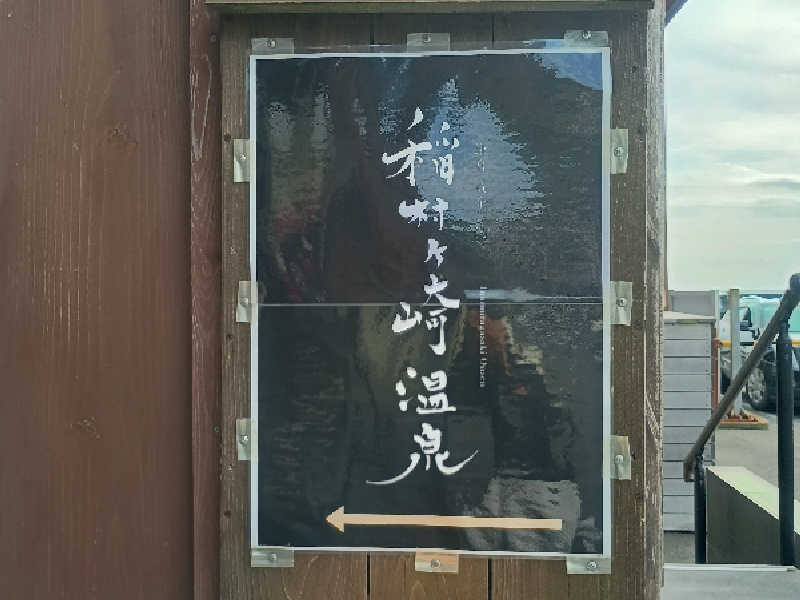 稲村ヶ崎温泉
Inamuragasaki Onsen